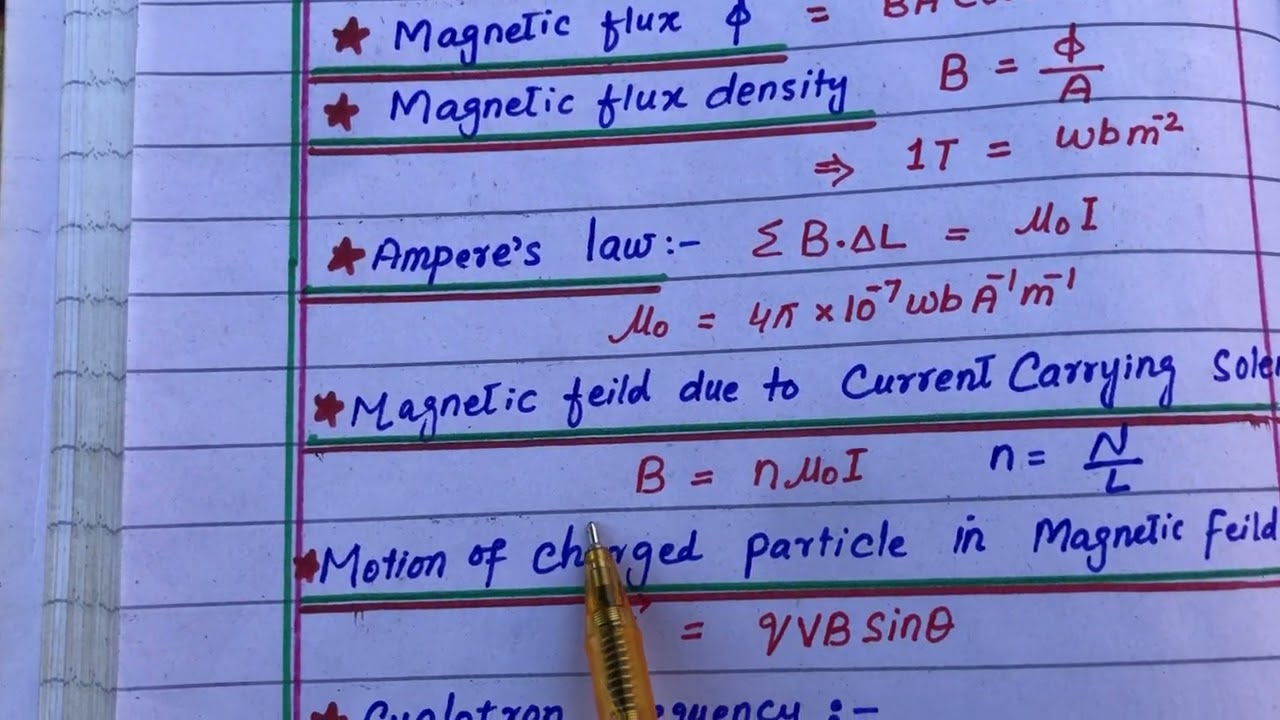 ★ Magnetic flux ϕ = BA
★ Magnetic flux density B = ϕ/A
⇒ 1T = wb m⁻²
★ Ampere's law:- Σ B.ΔL = μ₀I
μ₀ = 4π × 10⁻⁷ wb A⁻¹ m⁻¹
★ Magnetic feild due to Current Carrying
B = nμ₀I n = N/L
★ Motion of charged particle in Magnetic feild
= qVB sinθ
★